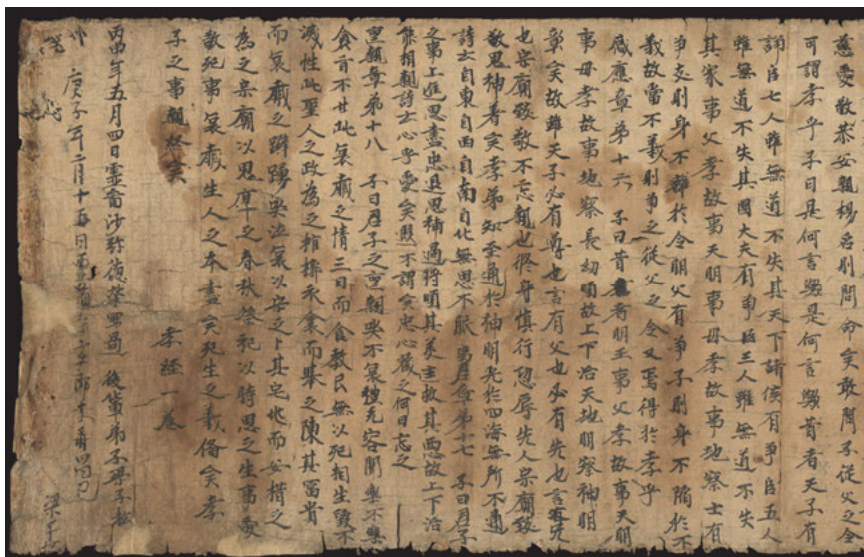 慈愛敬恭安親揚名則聞命矣敢問子從父之令
可謂孝乎子曰是何言歟是何言歟昔者天子有
諍臣七人雖無道不失其天下諸侯有爭臣五人
雖無道不失其國大夫有爭臣三人雖無道不失
其家事父孝故事天明事母孝故事地察士有
爭友則身不離於令朋父有爭子則身不陷於不
義故當不義則爭之從父之令又焉得於孝乎
感應章第十六 子曰昔者明王事父孝故事天明
事母孝故事地察長幼順故上下治天地明察神明
彰矣故雖天子必有尊也言有父也必有先也言有兄
也宗廟致敬不忘親也脩身慎行恐辱先人宗廟致
敬鬼神著矣孝弟之至通於神明光於四海無所不通
詩云自東自西自南自北無思不服 事君章第十七 子曰君子
之事上進思盡忠退思補過將順其美匡救其惡故上下治
能相親詩云心乎愛矣遐不謂矣忠心藏之何日忘之
喪親章第十八 子曰君子之喪親哭不偯禮無容聞樂不樂
食旨不甘此哀慼之情三日而食教民無以死相生毀不
滅性此聖人之政為之棺槨衣衾而舉之陳其簠簋
而哀慼之擗踊哭泣哀以安之卜其宅兆而安措之
為之宗廟以鬼享之春秋祭祀以時思之生事愛
敬死事哀慼生人之本盡矣死生之義備矣孝
子之事親終矣
孝經一卷
丙申年五月四日靈畨沙弥德榮寫過 後輩弟子
庚子年二月十五日